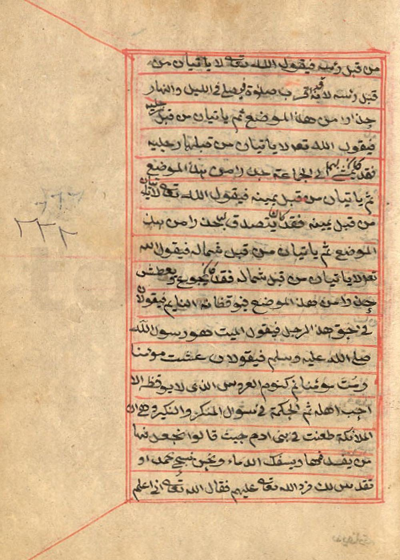 من قبل رئسه فيقول الله تعالى لا ياتيان من
قبل رئسه لانه صلوة فيصلي في الليل والنهار
حذرا من هذا الموضع ثم ياتيان من قبل رجليه
فيقول الله تعالى لا ياتيان من قبل رجليه
فقد كان يمشي الى الجماعة حذرا من هذا الموضع
ثم ياتيان من قبل يمينه فيقول الله تعالى لا ياتيان
من قبل يمينه فقد كان يتصدق حذرا من هذا
الموضع ثم ياتيان من قبل شماله فيقول الله
تعالى لا ياتيان من قبل شماله فقد كان يجوع ويعطش
حذرا من هذا الموضع فيوقظانه النايم فيقولان
في حق هذا الرجل فيقول الميت هو رسول الله
صلى الله عليه وسلم فيقولان عشت مومنا
ومت مومنا نم كنوم العروس الذى لا يوقظه الا
احب اهله ثم الحكمة في سؤال المنكر والنكير ان
الملائكة طعنت في بنى ادم حيث قالوا اتجعل فيها
من يفسد فيها ويسفك الدماء ونحن نسبح بحمدك و
نقدس لك فرد الله تعالى عليهم فقال الله تعالى انى اعلم
٢٢٢